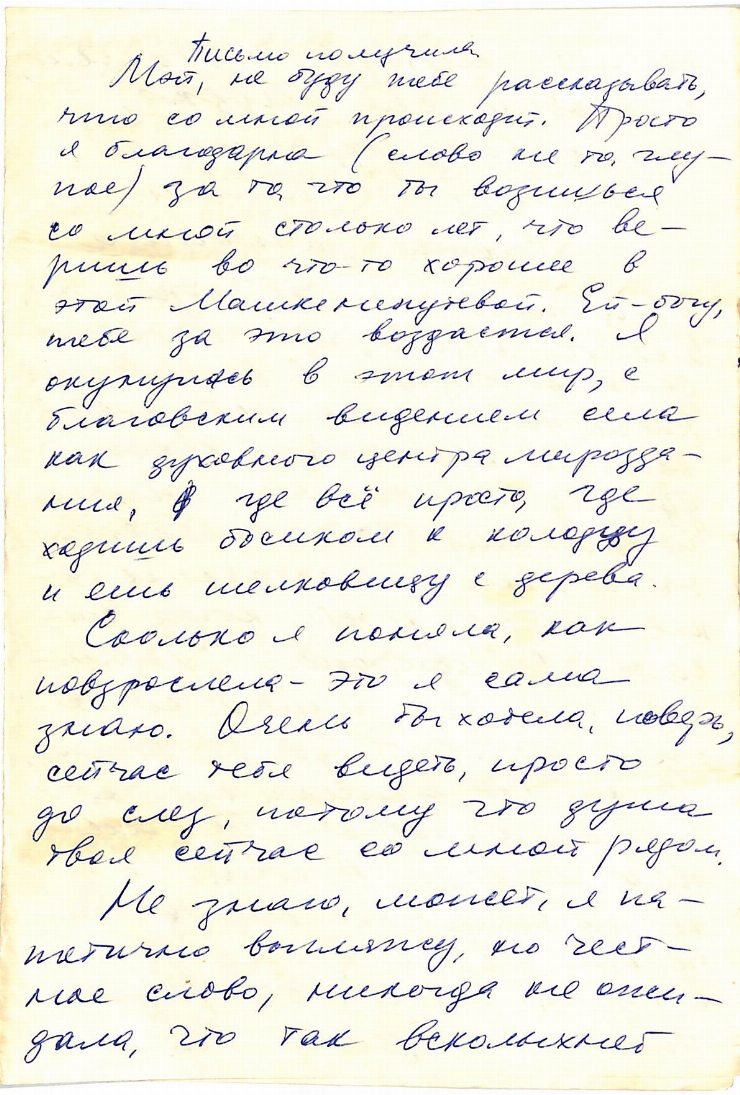 Письмо получила
Мэй, не буду тебе рассказывать,
что со мной происходит. Просто
я благодарна (слово не то, глу-
пое) за то, что ты возишься
со мной столько лет, что ве-
ришь во что-то хорошее в
этой Машке непутёвой. Ей-богу,
тебе за это воздастся. Я
окунулась в этот мир, с
благовским видением села
как духовного центра мирозда-
ния, где всё просто, где
ходишь босиком к колодцу
и ешь шелковицу с дерева.
Сколько я поняла, как
повзрослела - это я сама
знаю. Очень бы хотела, поверь,
сейчас тебя видеть, просто
до слез, потому что душа
твоя сейчас со мной рядом.
Не знаю, может, я па-
тетично выгляжу, но чест-
ное слово, никогда не ожи-
дала, что так всколыхнет